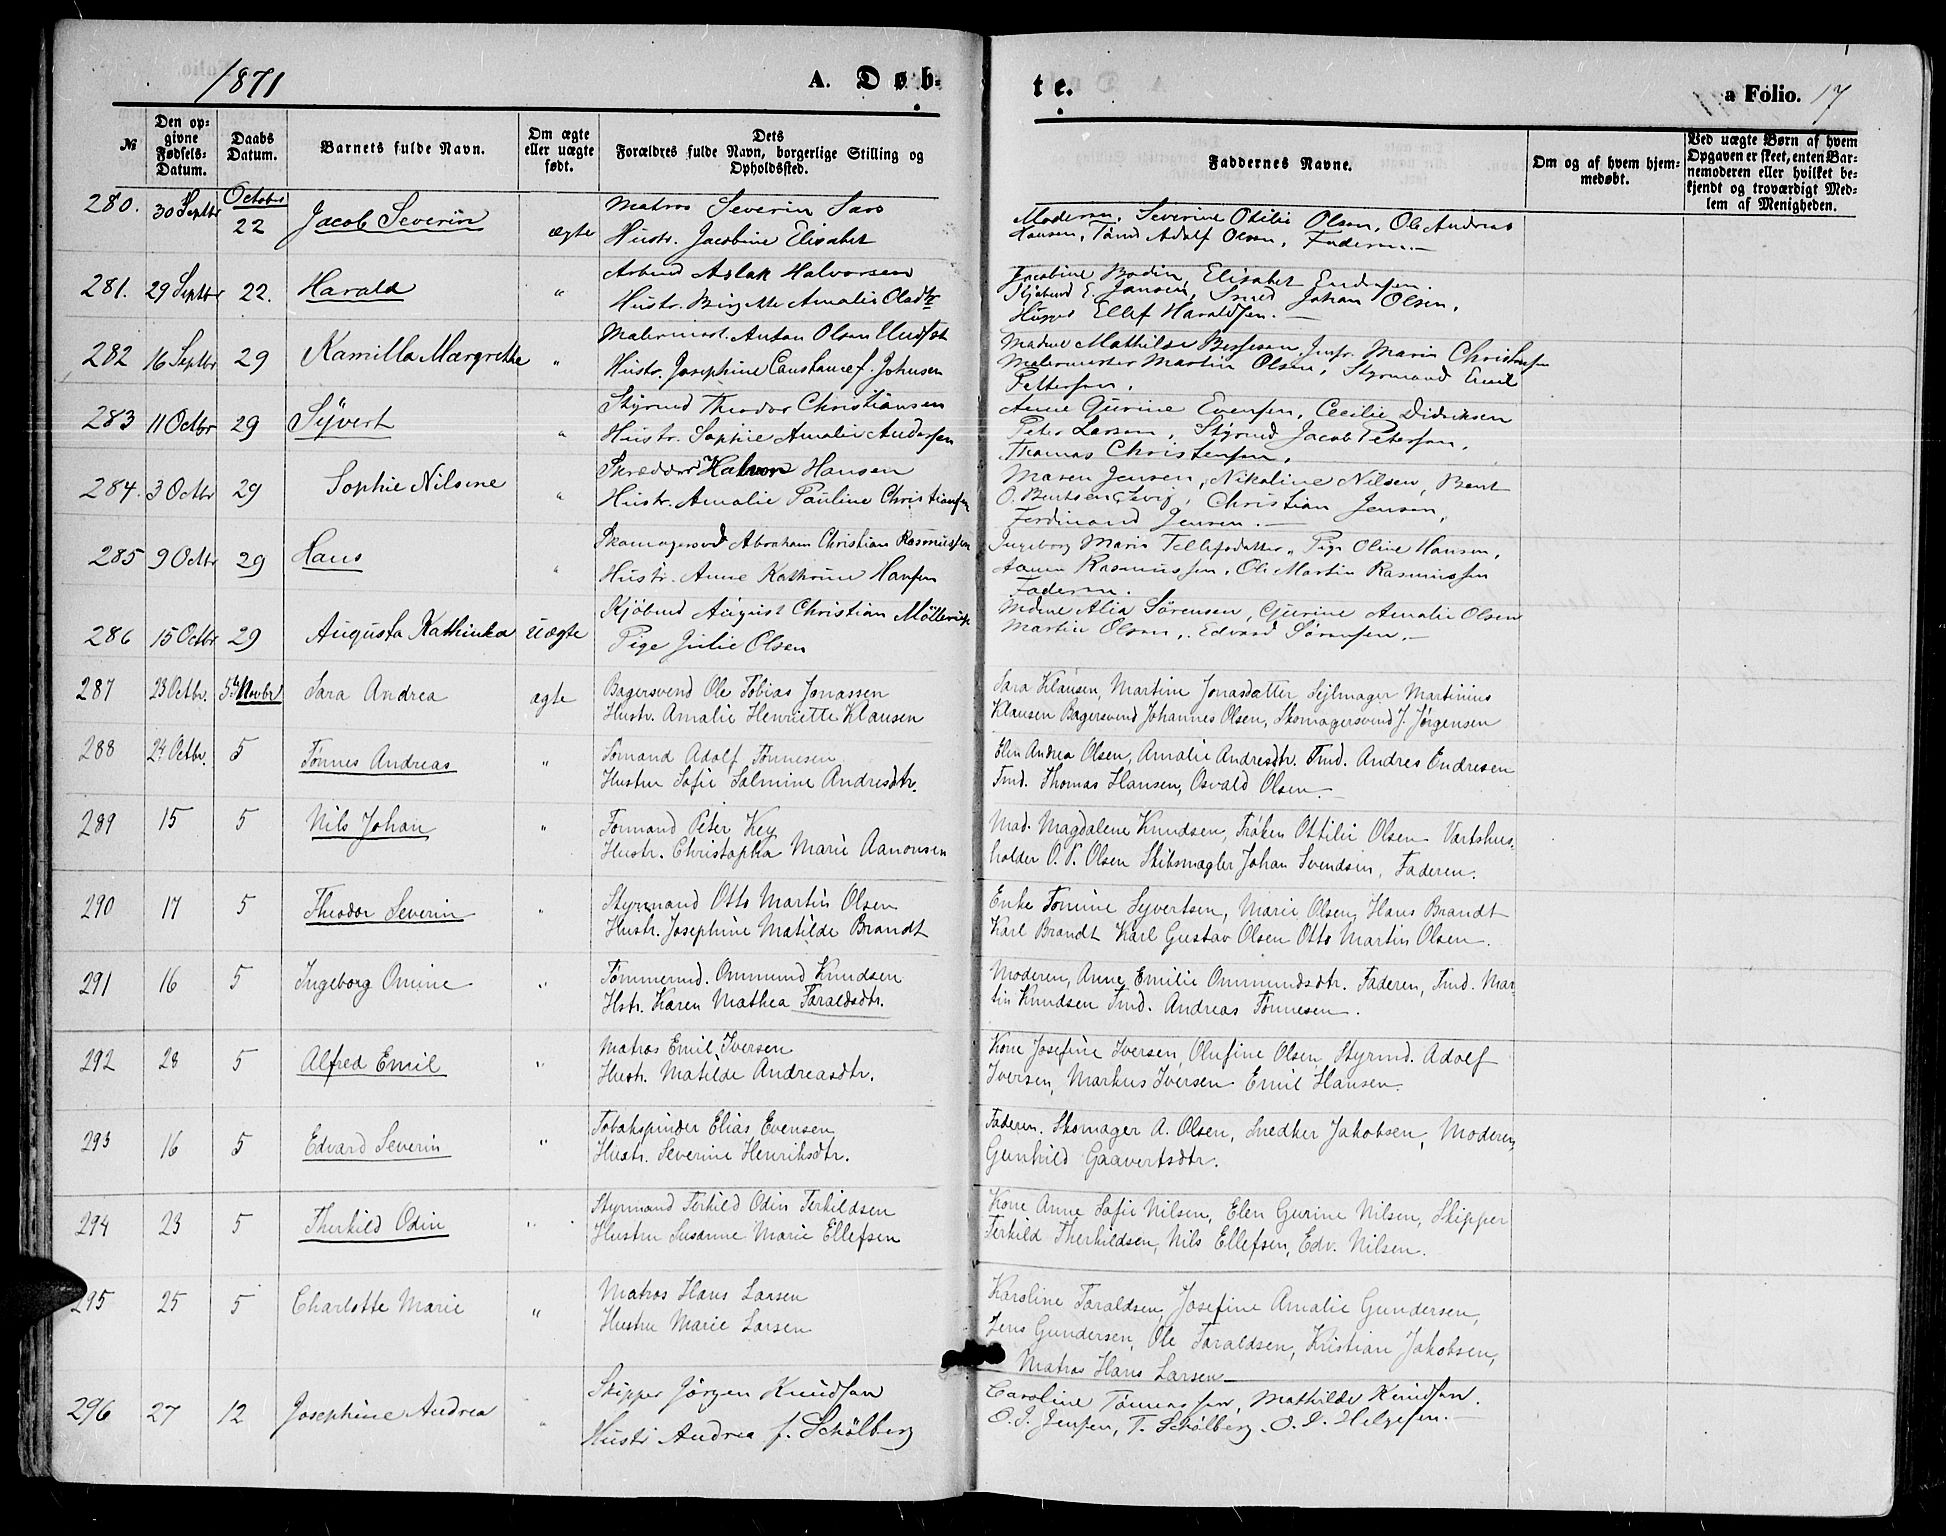 1871
A. Døb-
te.
a Folio. 17
№
Den op-
givne
Fødsels-
Datum.
Daabs
Datum.
Barnets fulde Navn.
Om ægte
eller uægte
født.
Dets
Forældres fulde Navn, borgerlige Stilling og
Opholdssted.
Faddernes Navne.
Om og af hvem hjem-
medøbt.
Ved uægte Børn af hvem
Opgaven er skeet, enten Bar-
nemoderen eller hvilket be-
kjendt og troværdigt Med-
lem af Menigheden.
280. 30 Septbr Octobr
22 Jacob Severin ægte
Matros Severin
Hustr. Jacobine Elisabet
Moderen, Severine Otilie Olsen, Ole Andreas
Hansen, Adolf Olsen, Faderen.
281. 29 Septbr 22. Harald "
Arbmd Aslak Halvorsen
Hustr. Birgitte Amalie Olsdtr
Jacobine Bodin, Elisabet
E. Jansen, Smed Johan Olsen,
Ellef Haraldsen.
282 16 Septbr 29 Kamilla Margrethe "
Malermest. Anton Olsen
Hustr. Josephine Constance f. Johnsen
Madme Mathilde Jmfr. Maria Christensen
Malermester Martin Olsen, Styrmand Emil
Pettersen.
283 11 Octbr 29 Syvert "
Styrmd Theodor Christiansen
Hustr. Sophie Amalie Andersen
Anne Gurine Evensen, Cecilie Didriksen
Peter Larsen, Styrmd Jacob Petersen,
Thomas Christensen.
284. 3 Octbr 29 Sophie Nilsine "
Skrædder Halvor Hansen
Hustr. Amalie Pauline Christiansen
Maren Jensen, Nikoline Nilsen, Bent
O. Bentsen, Christian Jensen,
Ferdinand Jensen.
285 9 Octbr 29 Hans "
Skomagersvd Abraham Christian Rasmussen
Hustr. Anne Kathrine Hansen
Ingeborg Marie Tellefsdatter, Pige Oline Hansen,
Rasmussen, Ole Martin Rasmussen
Faderen.
286 15 Octbr 29 Augusta Kathinka uægte
Kjøbmd August Christian Möllerup
Pige Julie Olsen
Mdme Alia Sörensen, Gurine Amalie Olsen
Martin Olsen, Edvard Sörensen.
287 23 Octbr. 5te Novbr Sara Andrea ægte
Bagersvend Ole Tobias Jonassen
Hustr. Amalie Henriette Klausen
Sara Klausen, Martine Jonasdatter Sejlmager Martinius
Klausen Bagersvend Johannes Olsen, Skomagersvend J. Jørgensen
288 24 Octbr. 5 Tønnes Andreas "
Sømand Adolf Tønnesen
Hustru Sofie Salmine Andresdtr.
Elen Andrea Olsen, Amalie Andresdtr. Tmd. Andres Endresen
Tmd. Thomas Hansen, Osvald Olsen.
289 15 5 Nils Johan "
Formand Peter Key
Hustr. Christopha Marie Aanonsen
Mad. Magdalene Knudsen, Frøken Ottilie Olsen Værtshus-
holder O. P. Olsen Skibsmægler Johan Svendsen, Faderen.
290 17 5 Theodor Severin "
Styrmand Otto Martin Olsen
Hustr. Josephine Matilde Brandt
Enke Tomine Syvertsen, Marie Olsen, Hans Brandt
Karl Brandt Karl Gustav Olsen Otto Martin Olsen.
291 16 5 Ingeborg Omine "
Tømmermd. Ommund Knudsen
Hstr. Karen Mathea Taraldsdtr.
Moderen, Anne Emilie Ommundsdtr. Faderen, Tmd. Mar-
tin Knudsen Tmd. Andreas Tønnesen.
292 28 5 Alfred Emil "
Matros Emil Iversen
Hustr. Matilde Andreasdtr.
Kone Josefine Iversen, Olufine Olsen, Styrmd. Adolf
Iversen, Markus Iversen Emil Hansen.
293 16 5 Edvard Severin "
Tobakspinder Elias Evensen
Hustr. Severine Henriksdtr.
Faderen. Skomager A. Olsen, Snedker Jakobsen, Moderen,
Gunhild Gaavertsdtr.
294 23 5 Therkild Odin "
Styrmand Terkild Odin Terkildsen
Hustru Susanne Marie Ellefsen
Kone Anne Sofie Nilsen, Elen Gurine Nilsen, Skipper
Terkild Therkildsen, Nils Ellefsen, Edv. Nilsen.
295 25 5 Charlotte Marie "
Matros Hans Larsen
Hustru Marie Larsen
Karoline Taraldsen, Josefine Amalie Gundersen,
Jens Gundersen, Ole Taraldsen, Kristian Jakobsen,
Matros Hans Larsen
296 27 12 Josephine Andrea "
Skipper Jörgen Knudsen
Hustr Andrea f. Schölberg
Caroline Tönnessen, Mathilde Knudsen.
C. J. Jensen, T. Schölberg. O. J. Helgesen.